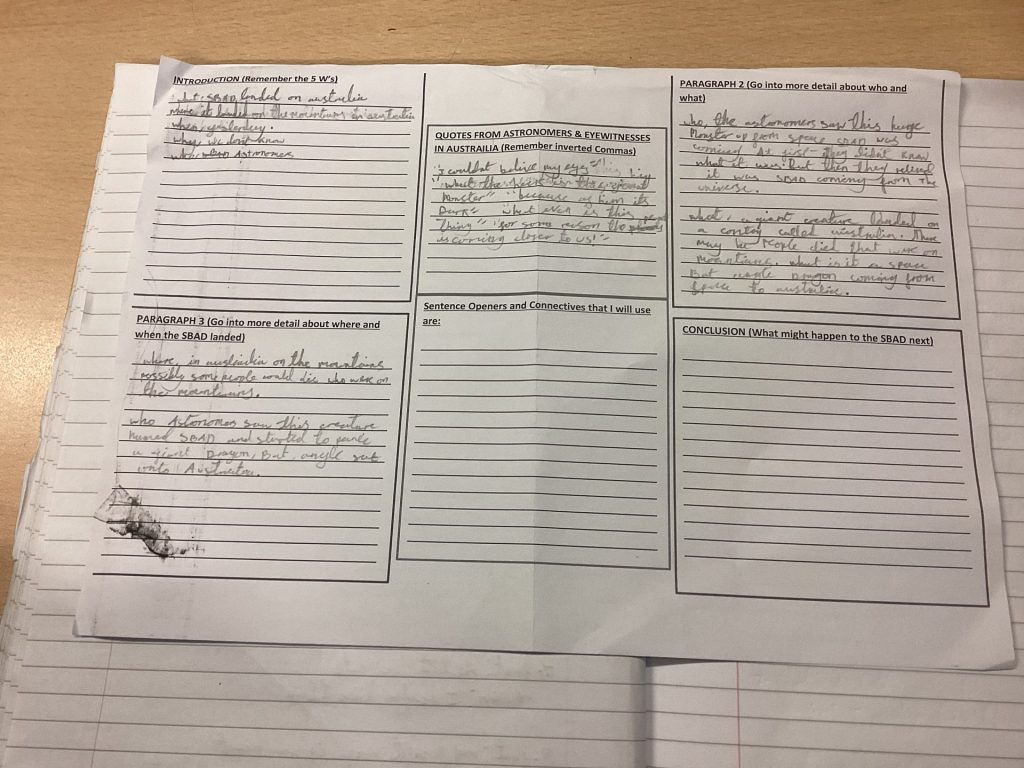 INTRODUCTION (Remember the 5 W's)
SBAD landed on australia
where, it landed on the mountains in australia
when, yesterday.
Why, we dont know
who, Astronomers
QUOTES FROM ASTRONOMERS & EYEWITNESSES
IN AUSTRAILIA (Remember inverted Commas)
"I couldnt belive my eyes"! big
"what the is this
Monster" "because of him its
Dark" "what even is this
thing" "for some reason the
is coming closer to us!"
PARAGRAPH 2 (Go into more detail about who and
what)
who, the astronomers saw this huge
Monster up from space SBAD was
At first they didnt know
what it was But then they
it was SBAD coming from the
universe.
what, a giant creature landed on
a called australia. There
may be people died that were on
what is it a space
But Dragon coming from
space to australia.
PARAGRAPH 3 (Go into more detail about where and
when the SBAD landed)
where, in australia on the mountains
possibly some people could die who were on
the mountains.
who Astronomers saw this creature
Named SBAD and started to
a giant Dragon, But angle
onto Australia.
Sentence Openers and Connectives that I will use
are:
CONCLUSION (What might happen to the SBAD next)